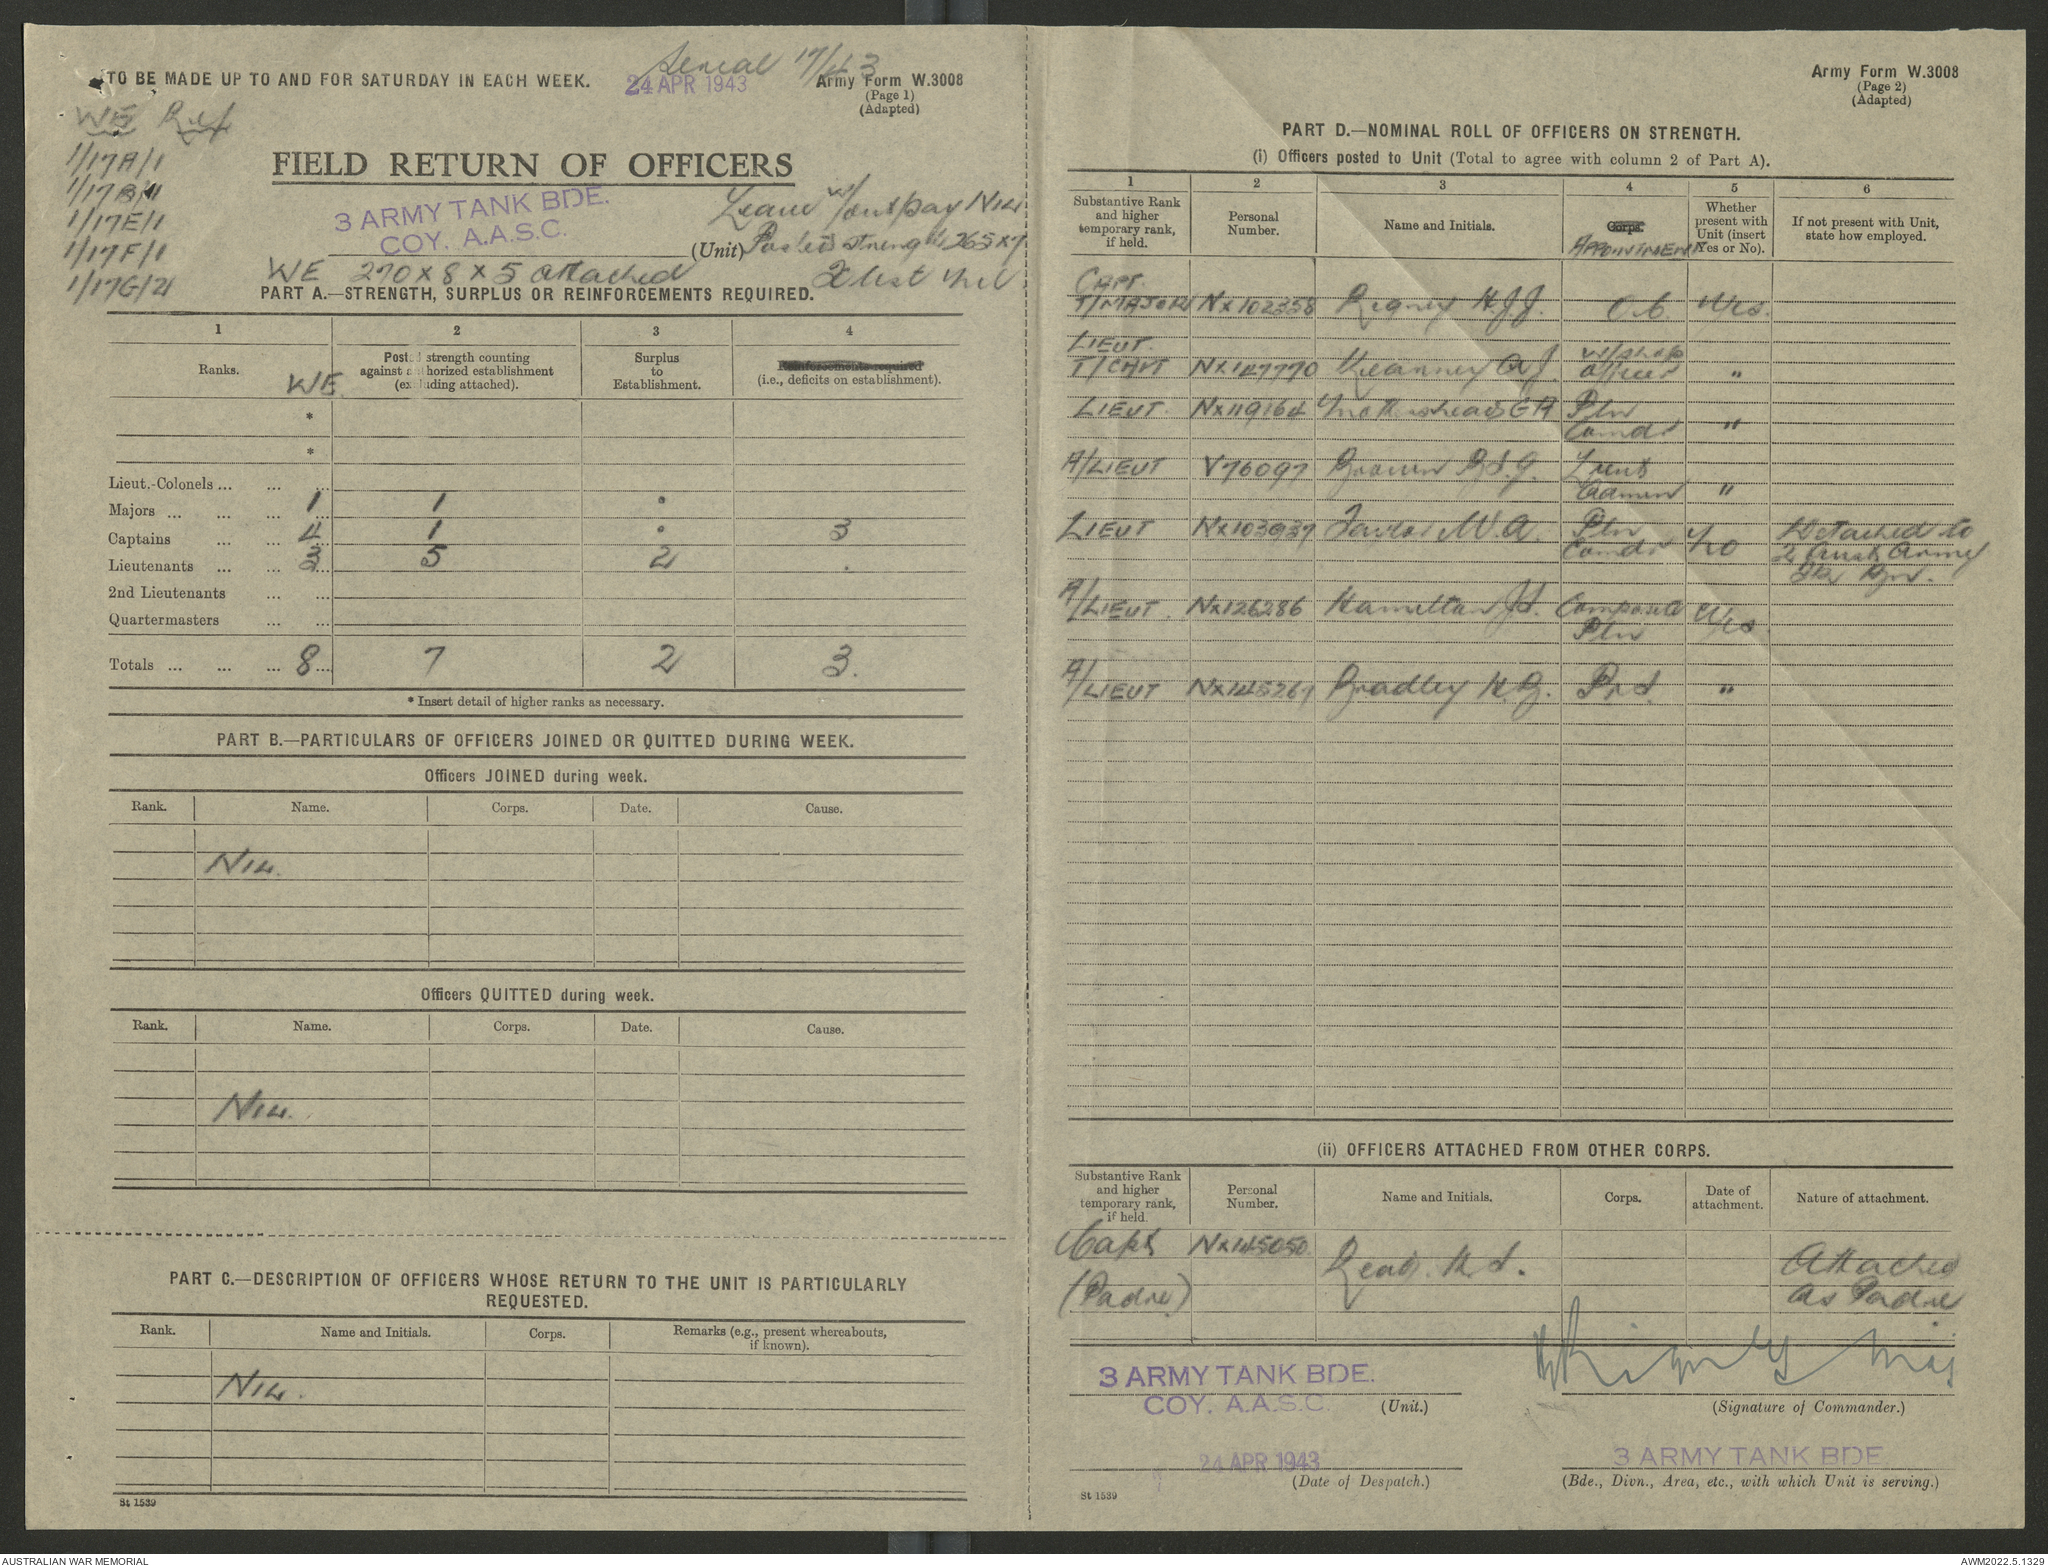 Serial 17/43
TO BE MADE UP TO AND FOR SATURDAY IN EACH WEEK. 24 APR 1943 Army Form W.3008
(Page 1)
(Adapted)
WE Ref
1/17A/1
1/17B/1
1/17E/1
1/17F/1
1/17G/21
FIELD RETURN OF OFFICERS
3 ARMY TANK BDE.
COY. A.A.S.C.
(Unit)
Leave w/out pay NIL
Posted strength 265 x 7
X list Nil
WE 270 x 8 x 5 attached
PART A.—STRENGTH, SURPLUS OR REINFORCEMENTS REQUIRED.
1 2 3 4
Ranks. WE Posted strength counting against authorized establishment (excluding attached). Surplus to Establishment. Reinforcements required (i.e., deficits on establishment).
*
*
Lieut.-Colonels ... ... ...
Majors ... ... ... 1 1 .
Captains ... ... 4 1 . 3
Lieutenants ... ... 3 5 2 .
2nd Lieutenants ... ...
Quartermasters ... ...
Totals ... ... ... 8 7 2 3.
* Insert detail of higher ranks as necessary.
PART B.—PARTICULARS OF OFFICERS JOINED OR QUITTED DURING WEEK.
Officers JOINED during week.
Rank. Name. Corps. Date. Cause.
NIL.
Officers QUITTED during week.
Rank. Name. Corps. Date. Cause.
NIL.
PART C.—DESCRIPTION OF OFFICERS WHOSE RETURN TO THE UNIT IS PARTICULARLY
REQUESTED.
Rank. Name and Initials. Corps. Remarks (e.g., present whereabouts, if known).
NIL.
St 1539
Army Form W.3008
(Page 2)
(Adapted)
PART D.—NOMINAL ROLL OF OFFICERS ON STRENGTH.
(i) Officers posted to Unit (Total to agree with column 2 of Part A).
1 2 3 4 5 6
Substantive Rank and higher temporary rank, if held. Personal Number. Name and Initials. Corps. APPOINTMENT Whether present with Unit (insert Yes or No). If not present with Unit, state how employed.
CAPT.
T/MAJOR NX102358 Rigney H.J.J. O.C. Yes.
LIEUT.
T/CAPT NX147770 Kearney A J. W/shop Officer "
LIEUT. NX119164 Mothershead G A Pln Comdr "
A/LIEUT V76097 Brown R.S.G. Lieut Admin "
LIEUT NX103937 Taylor W.A. Pln Comdr No Detached to 2 Aust Army Tk Bn.
A/LIEUT. NX126286 Hamilton J.S. Composite Pln Yes.
A/LIEUT NX145267 Bradley H.G. Pnt. "
(ii) OFFICERS ATTACHED FROM OTHER CORPS.
Substantive Rank and higher temporary rank, if held. Personal Number. Name and Initials. Corps. Date of attachment. Nature of attachment.
Capt NX145050 Read. H.S. Attached
(Padre) as Padre
3 ARMY TANK BDE.
COY. A.A.S.C. (Unit.)
HRigney Maj
(Signature of Commander.)
24 APR 1943
(Date of Despatch.)
3 ARMY TANK BDE
(Bde., Divn., Area, etc., with which Unit is serving.)
St 1539
AUSTRALIAN WAR MEMORIAL AWM2022.5.1329